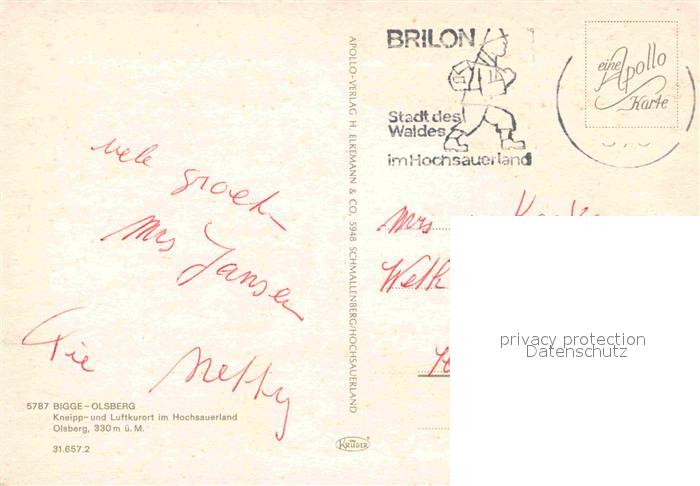 vele groeten
Mrs Jansen
Netty
5787 BIGGE-OLSBERG
Kneipp- und Luftkurort im Hochsauerland
Olsberg, 330 m ü. M.
31.657.2
APOLLO-VERLAG H. ELKEMANN & CO, 5948 SCHMALLENBERG/HOCHSAUERLAND
KRÜGER
BRILON
Stadt des
Waldes
im Hochsauerland
eine Apollo
Karte
Mrs
privacy protection
Datenschutz